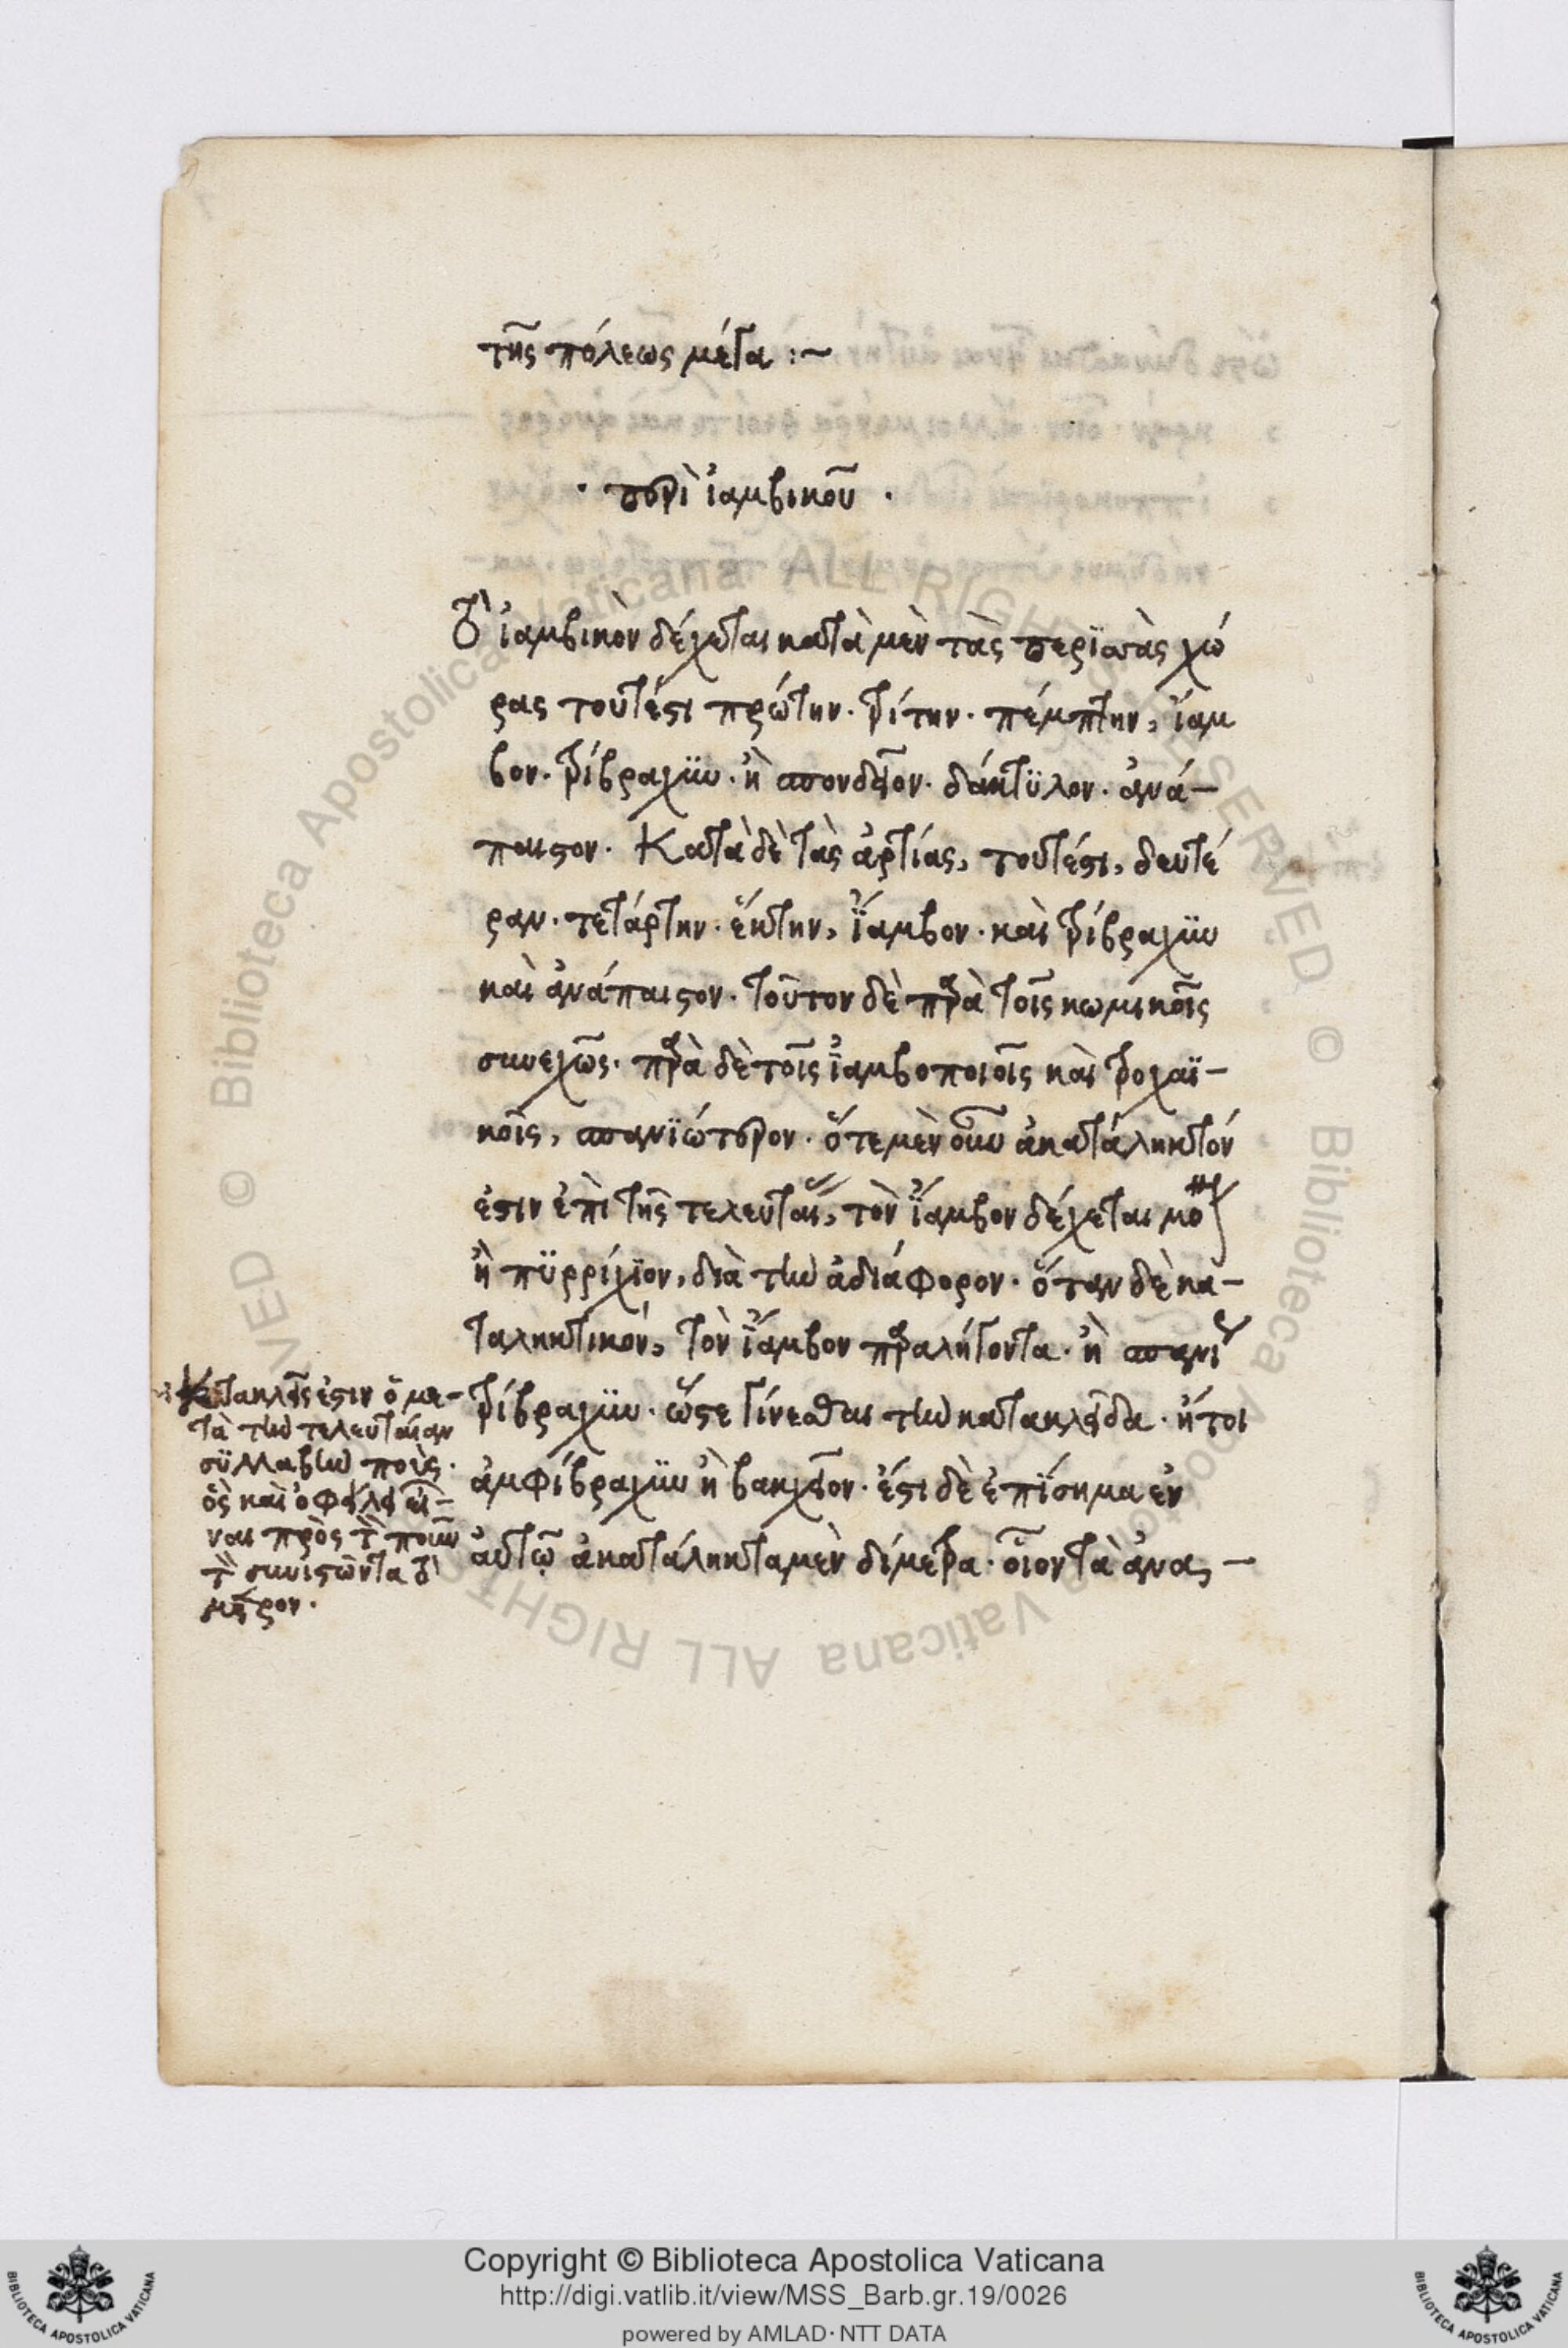 τῆς πόλεως μέγα :~
· περὶ ἰαμβικοῦ ·
Τὸ ἰαμβικὸν δέχεται κατὰ μὲν τὰς περϊττὰς χώ
ρας τουτέστι πρώτην· τρίτην· πέμπτην, ἴαμ
βον· τρίβραχϋν· ἢ σπονδεῖον· δάκτϋλον· ἀνά-
παιστον. Κατὰ δὲ τὰς ἀρτίας, τουτέστι, δευτέ
ραν· τετάρτην· ἕκτην, ἴαμβον· καὶ τρίβραχϋν
καὶ ἀνάπαιστον· τοῦτον δὲ παρὰ τοῖς κωμικοῖς
συνεχῶς· παρὰ δὲ τοῖς ἰαμβοποιοῖς καὶ τροχαϊ-
κοῖς, σπανϊώτερον· ὅτε μὲν οὖν ἀκατάληκτόν
ἐστιν ἐπὶ τῆς τελευταίας, τὸν ἴαμβον δέχεται μόνον
ἢ πϋρρίχϊον, διὰ τὴν ἀδιάφορον· ὅταν δὲ κα-
ταληκτικόν, τὸν ἴαμβον παραλήγοντα· ἢ σπανίως
τρίβραχϋν· ὥστε γίνεσθαι τὴν κατακλεῖδα· ἤτοι
ἀμφίβραχϋν ἢ βακχεῖον· ἔστι δὲ ἐπΐσημα ἐν
αὐτῷ ἀκατάληκτα μὲν δίμετρα· οἷον τὰ ἀνα, -
Κατακλείς ἐστιν ὁ με-
τὰ τὴν τελευταίαν
σϋλλαβὴν ποὺς·
ὃς καὶ ὀφείλει εἶ-
ναι πρὸς τὸν ποιὸν
τὸν συνιστῶντα τὸ
μέτρον·
Copyright © Biblioteca Apostolica Vaticana
http://digi.vatlib.it/view/MSS_Barb.gr.19/0026
powered by AMLAD · NTT DATA